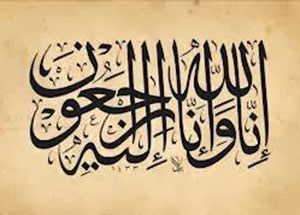 إِنَّا لِلَّٰهِ وَإِنَّا إِلَيْهِ رَاجِعُونَ
١٤٣٣